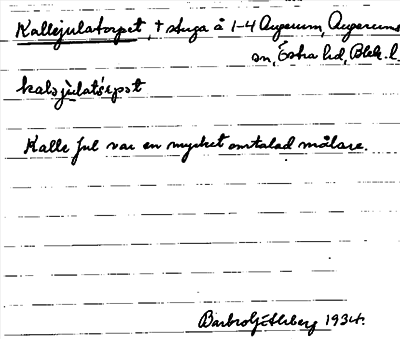 Kallejulatorpet, † stuga å 1-4 Augerum, Augerums
sn, Östra hd, Blek. l.
kalsjùlatśrpət
Kalle Jul var en mycket omtalad målare.
1934.